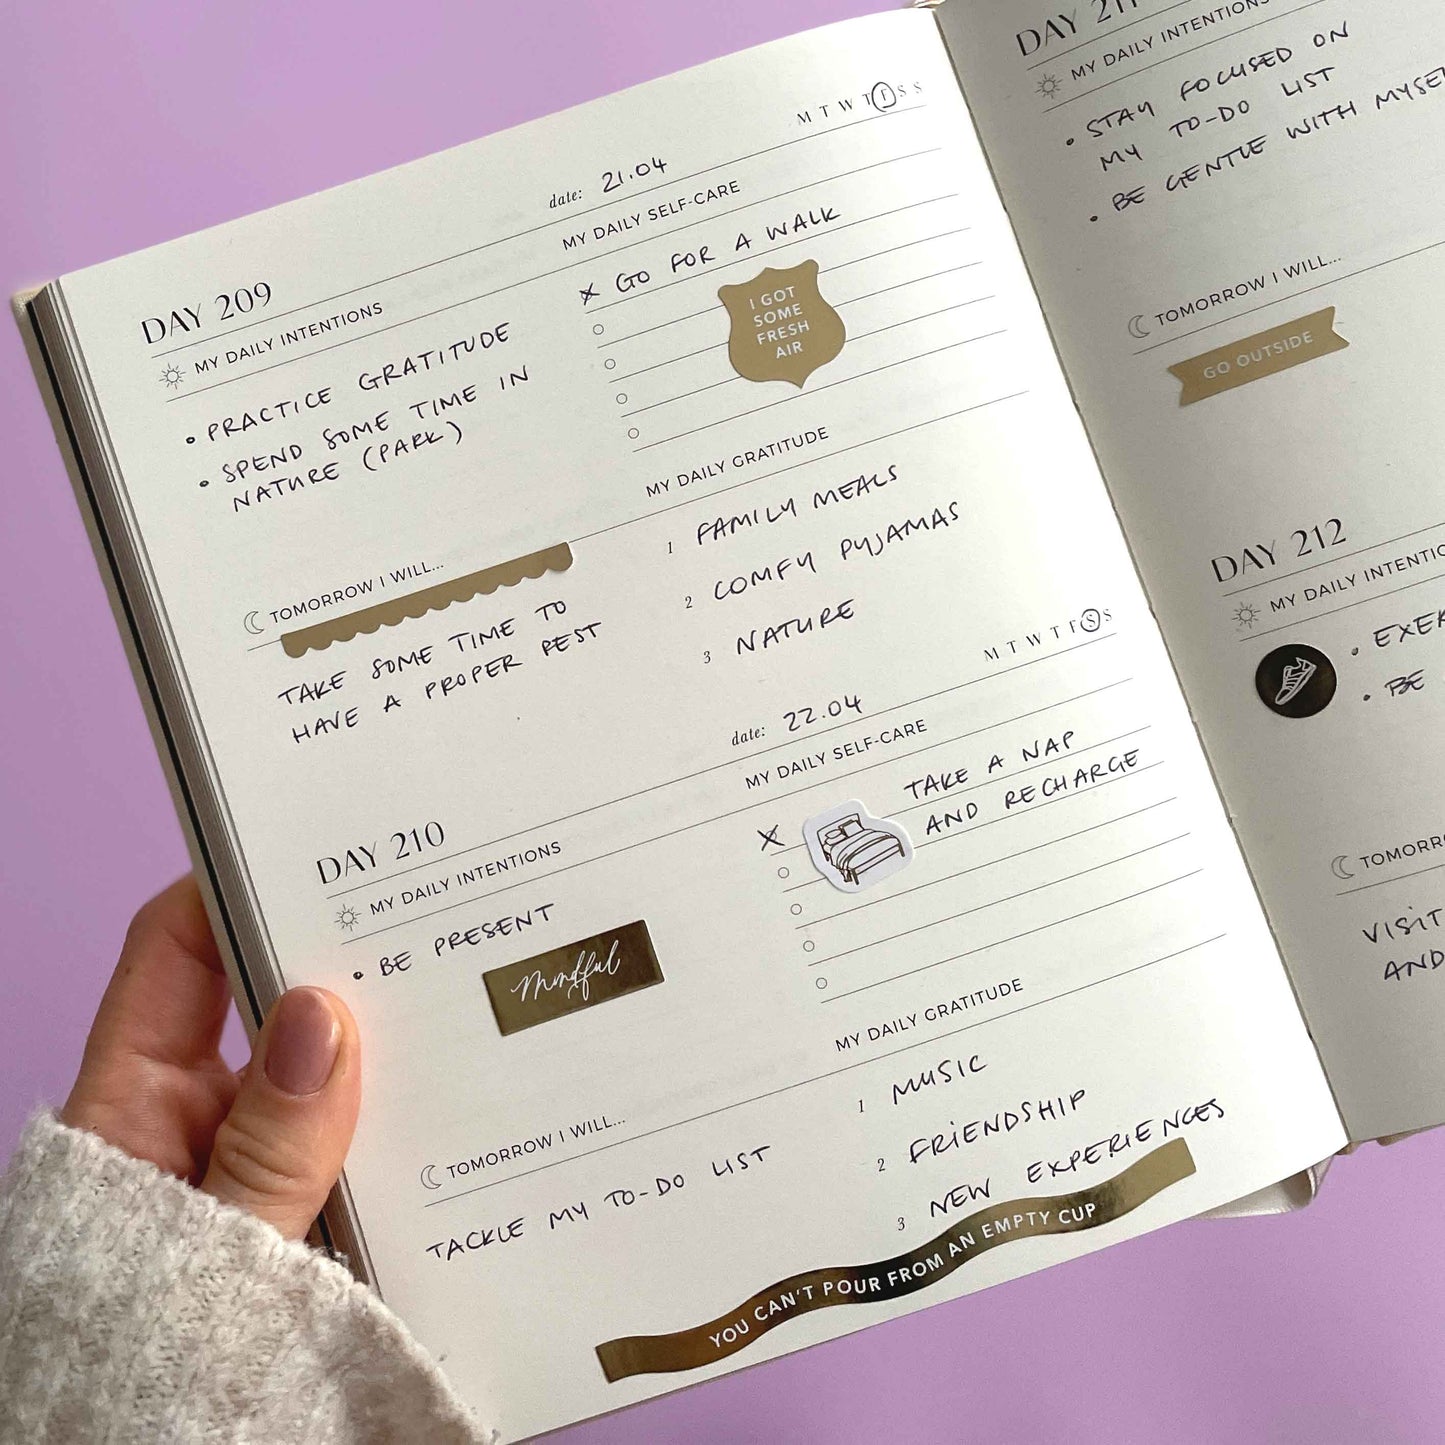 M T W T F S S
date: 21.04
DAY 209
MY DAILY INTENTIONS
• PRACTICE GRATITUDE
• SPEND SOME TIME IN
NATURE (PARK)
MY DAILY SELF-CARE
GO FOR A WALK
I GOT
SOME
FRESH
AIR
TOMORROW I WILL...
TAKE SOME TIME TO
HAVE A PROPER REST
MY DAILY GRATITUDE
1 FAMILY MEALS
2 COMFY PYJAMAS
3 NATURE
M T W T F S S
date: 22.04
DAY 210
MY DAILY INTENTIONS
• BE PRESENT
Mindful
MY DAILY SELF-CARE
TAKE A NAP
AND RECHARGE
TOMORROW I WILL...
TACKLE MY TO-DO LIST
MY DAILY GRATITUDE
1 MUSIC
2 FRIENDSHIP
3 NEW EXPERIENCES
YOU CAN'T POUR FROM AN EMPTY CUP
DAY 211
MY DAILY INTENTIONS
• STAY FOCUSED ON
MY TO-DO LIST
• BE GENTLE WITH
TOMORROW I WILL...
GO OUTSIDE
DAY 212
MY DAILY
• BE
VISIT
AND